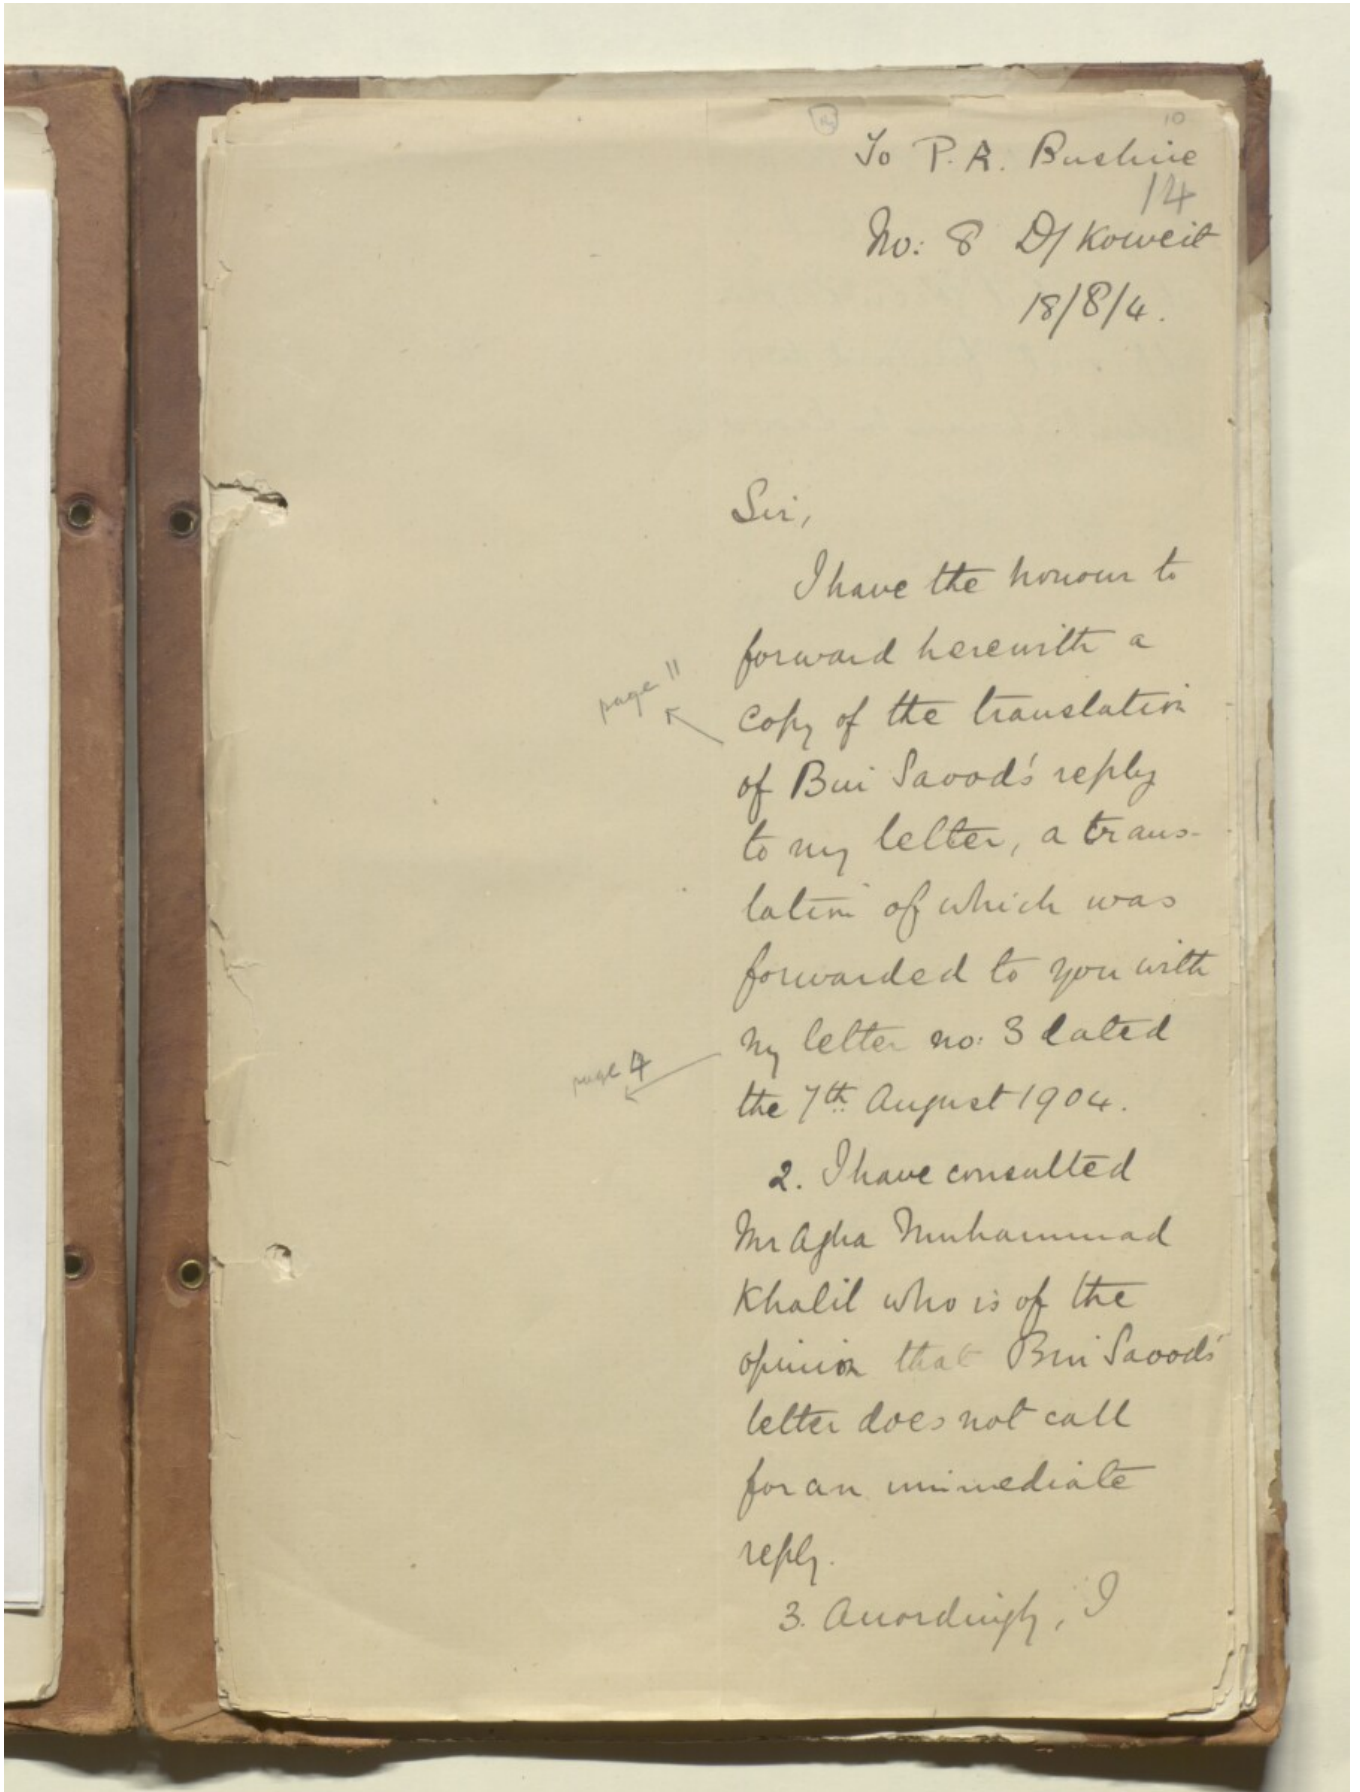 10
To P. R. Bushire
14
No: 8 D/ Koweit
18/8/4.
Sir,
I have the honour to
forward herewith a
page 11
copy of the translation
of Bin Saood's reply
to my letter, a trans-
lation of which was
forwarded to you with
my letter no: 3 dated
page 4
the 7th August 1904.
2. I have consulted
Mr Agha Muhammad
Khalil who is of the
opinion that Bin Saood's
letter does not call
for an immediate
reply.
3. Accordingly, I